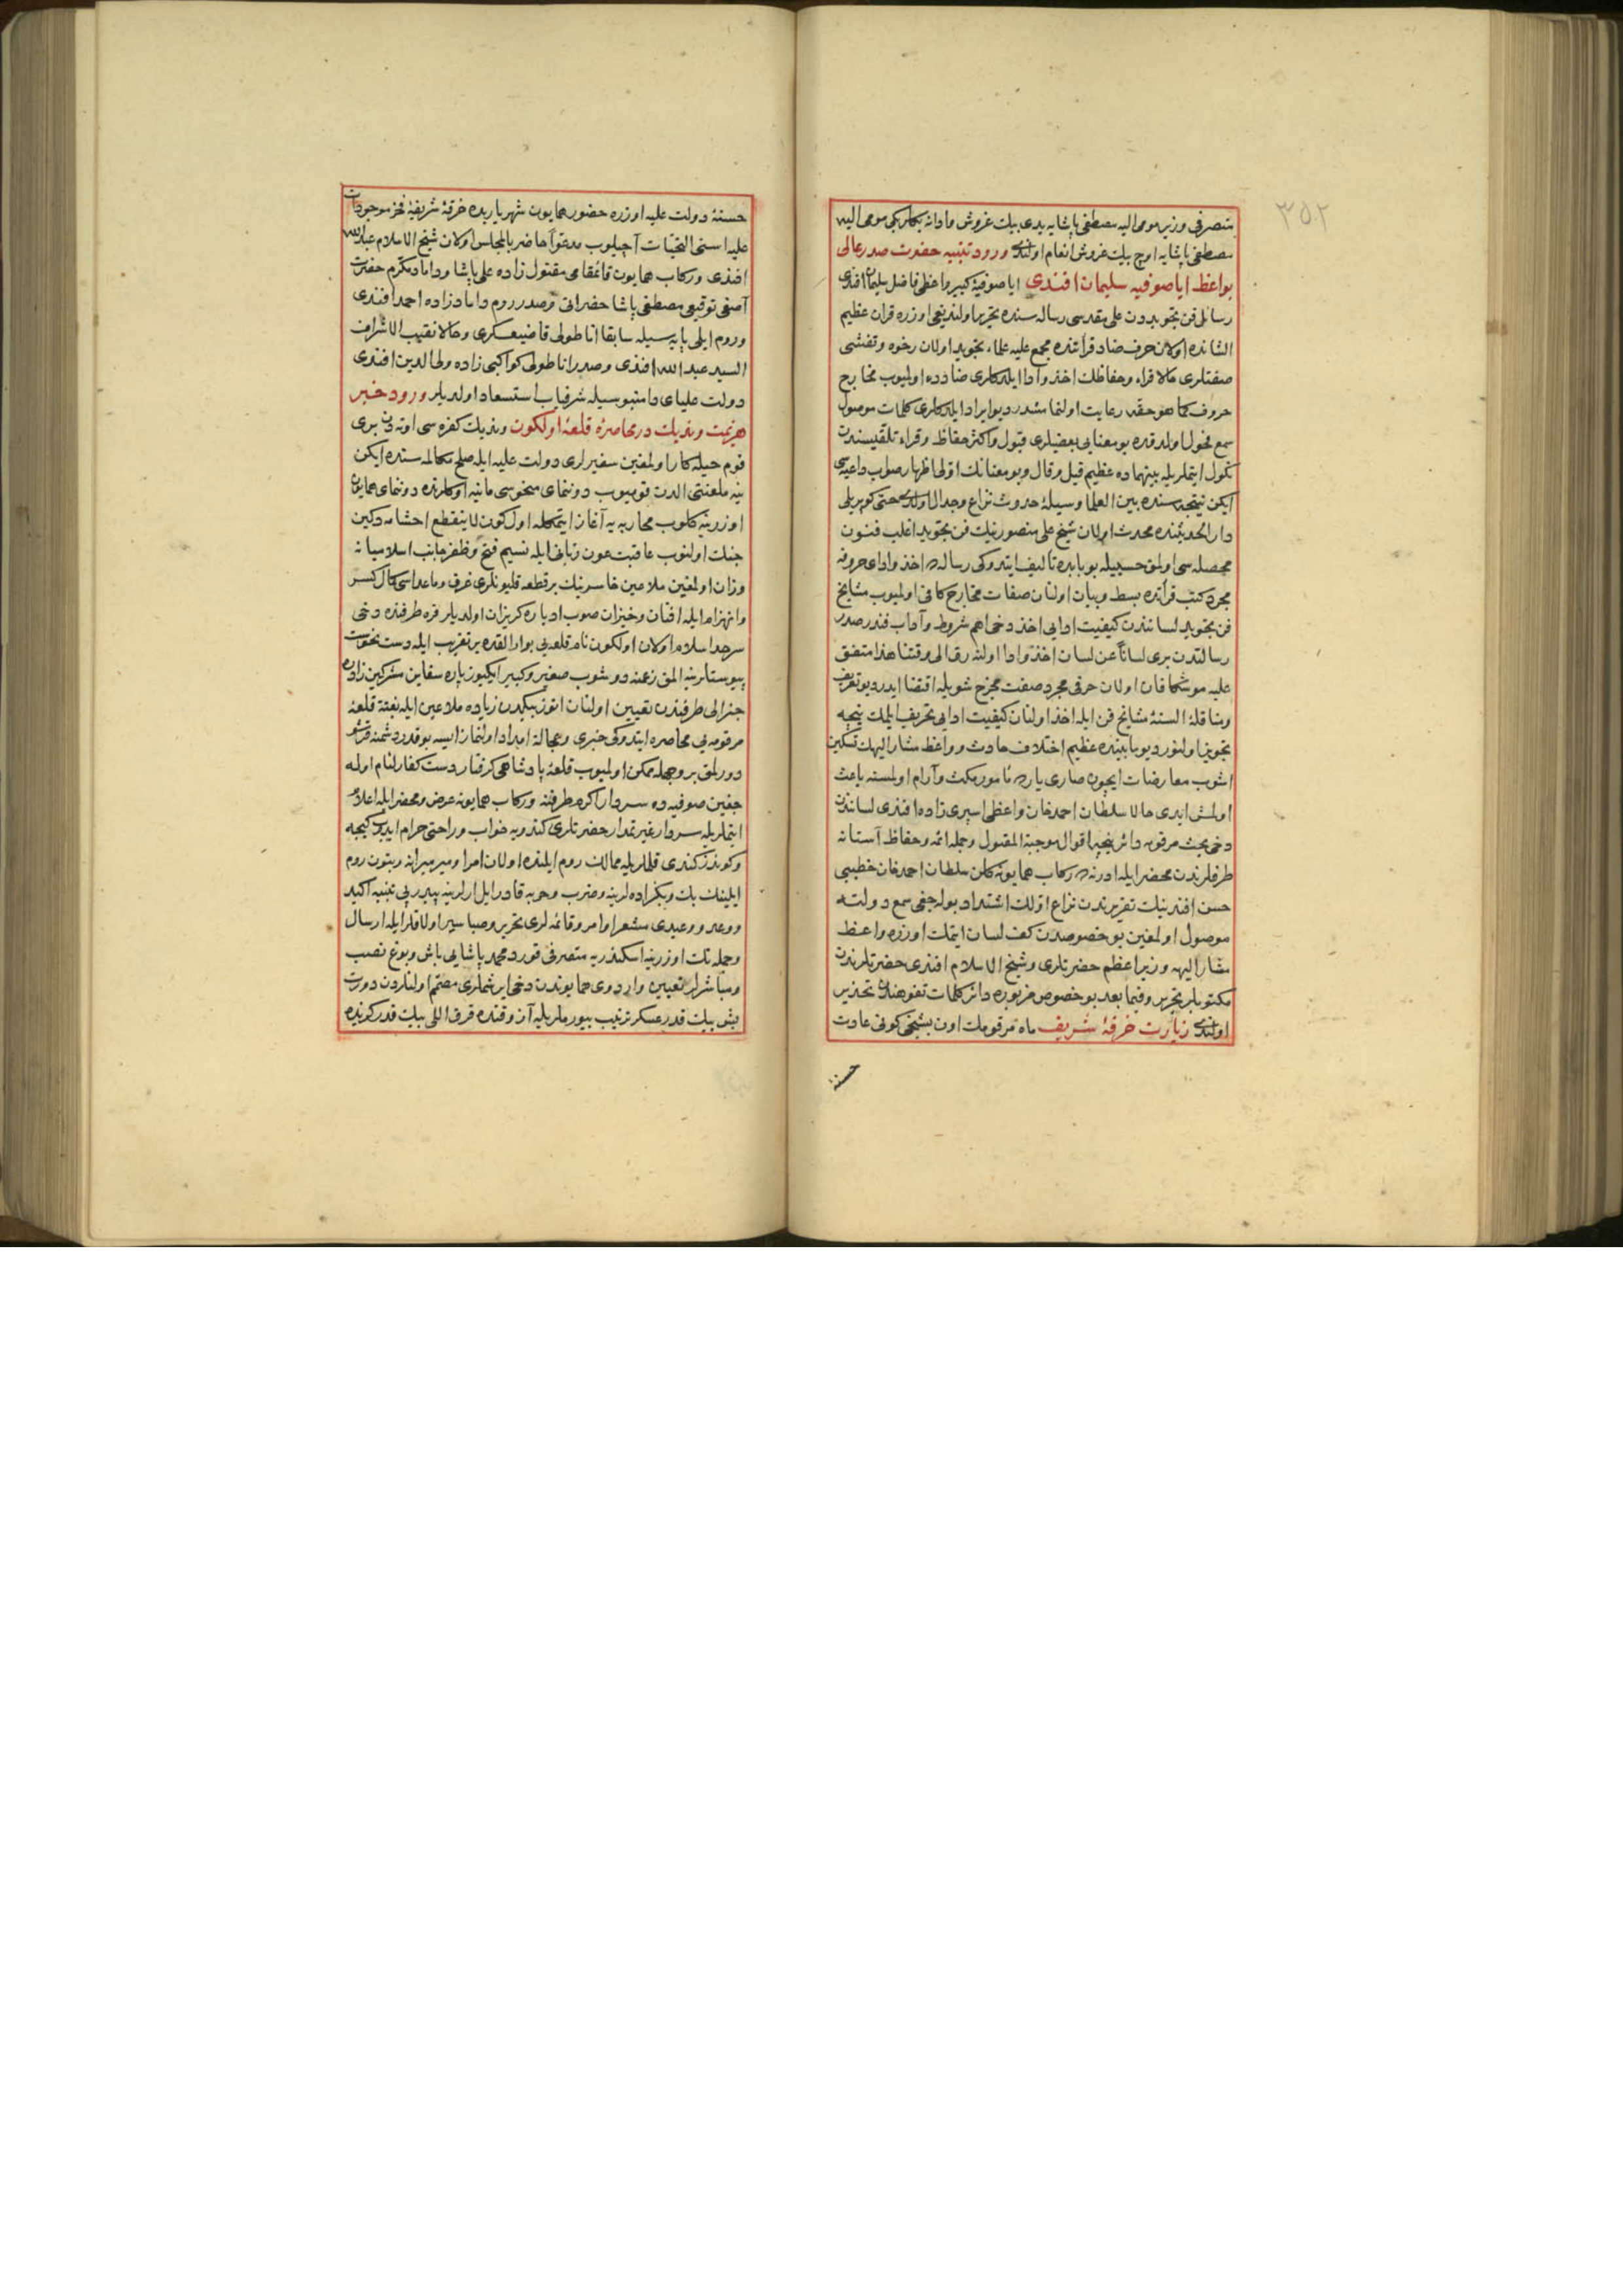 ٣٥٢
متصرفی وزیر مومی الیه مصطفی پاشایه یدی بیك غروش وادانه بكلربكی مومی الیه
مصطفی پاشایه اوچ بیك غروش انعام اولندی ورود تنبیه حضرت صدر عالی
بواعظ ایاصوفیه سلیمان افندی ایاصوفیهٔ كبیر واعظی فاضل سلیمان افندی
رسائل فن تجویددن علی مقدسی رساله سنده تحریر اولندیغی اوزره قران عظیم
الشانده اولان حرف ضاد قرأتنده مجمع علیه علماء تجوید اولان رخوه وتفشی
صفتلری حالا قراء وحفاظك اخذ وادا ایلدكلری ضادده اولمیوب مخارج
حروف كما هو حقه رعایت اولنمامشدر دیو ایراد ایلدكلری كلمات موصول
سمع فحول اولدقده بو معنایی بعضیلری قبول واكثر حفاظ وقراء تلقیسندن
نكول ایتملریله بینهماده عظیم قیل وقال وبو معنانك اولی اظهار صواب داعیه سی
ایكن نتیجه سنده بین العلما وسیلهٔ حدوث نزاع وجدال اولدی حتی كوپریلی
دار الحدیثنده محدث اولان شیخ علی منصورینك فن تجوید اغلب فنون
محصله سی اولمق حسبیله بو بابده تالیف ایتدوكی رساله ده اخذ وادای حروفه
مجرد كتب قرآنده بسط وبیان اولنان صفات مخارج كافی اولمیوب مشایخ
فن تجوید لسانندن كیفیت ادایی اخذ دخی اهم شروط وآداب فندر صدر
رسالتدن بری لساناً عن لسان اخذ وادا اولنه رق الی وقتنا هذا متفق
علیه موشكافان اولان حرفی مجرد صفت مخرج شویله اقتضا ایدر دیو تعریف
وتناقلهٔ السنهٔ مشایخ فن ایله اخذ اولنان كیفیت ادایی تحریف ایلمك نیجه
تجویز اولنور دیو مابینده عظیم اختلاف حادث وواعظ مشار الیهك تسكین
اشوب معارضات ایچون صاری یارده نامور مكث وآرام اولمسنه باعث
اولمش ایدی حالا سلطان احمد خان واعظی اسپری زاده افندی لسانندن
دخی بحث مرقومه دائر نیجه اقوال موجبة القبول وجمله ائمه وحفاظ آستانه
طرفلرندن محضر ایله ادرنه ده ركاب همایونه كلن سلطان احمد خان خطیبی
حسن افندینك تقریرندن نزاع اولك اشتداد بوله جغی سمع دولته
موصول اولمغین بو خصوصدن كف لسان ایتمك اوزره واعظ
مشار الیهه وزیر اعظم حضرتلری وشیخ الاسلام افندی حضرتلرندن
مكتوبلر تحریر وفیما بعد بو خصوص مزبوره دائر كلمات تفوهندن تحذیر
اولندی زیارت خرقهٔ شریف ماه مرقومك اون بشنجی كونی عادت
حسنهٔ
حسنهٔ دولت علیه اوزره حضور همایون شهریاریده خرقهٔ شریفهٔ فخر موجودات
علیه اسنی التحیات آچیلوب مدعواً حاضر بالمجلس اولان شیخ الاسلام عبد الله
افندی وركاب همایون قائمقامی مقتول زاده علی پاشا وداماد مكرم حضرت
آصفی توقیعی مصطفی پاشا حضراتی وصدر روم داماد زاده احمد افندی
وروم ایلی پایه سیله سابقا اناطولی قاضیعسكری وحالا نقیب الاشراف
السید عبد الله افندی وصدر اناطولی كواكبی زاده ولی الدین افندی
دولت علیای دامنبوسیله شرفیاب استسعاد اولدیلر ورود خبر
هزیمت وندیك در محاصرهٔ قلعهٔ اولكون وندیك كفره سی اوته دن بری
قوم حیله كار اولمغین سفیرلری دولت علیه ایله صلح مكالمه سنده ایكن
ینه ملعنتی الدن قومیوب دوننمای منحوسی مانیه اوكلرنده دوننمای همایون
اوزرینه كلوب محاربه یه آغاز ایتمكله اول كون لاینقطع اخشامه دكین
جنك اولنوب عاقبت عون ربانی ایله نسیم فتح وظفر جانب اسلامیانه
وزان اولمغین ملاعین خاسرینك بر قطعه قلیونلری غرق وماعداسی كمال كسر
وانهزام ایله افتان وخیزان صوب ادباره كریزان اولدیلر قره طرفنده دخی
سرحد اسلام اولان اولكون نام قلعه یی بوادالقده بر تقریب ایله دست نخوت
پیوستلرینه المق زعمنه دوشوب صغیر وكبیر ایكیوز پاره سفاین مشركین زاده
جنرالی طرفندن تعیین اولنان اوتوز بیكدن زیاده ملاعین ایله بغتة قلعهٔ
مرقومه یی محاصره ایتدوكی خبری وعجالة امداد اولنماز ایسه بو قدر دشمنه قرشو
دورلمق بر وجهله ممكن اولمیوب قلعهٔ پادشاهی كرفتار دست كفار لئام اوله
جغین صوفیه ده سردار اكرم طرفنه وركاب همایونه عرض ومحضر ایله اعلام
ایتملریله سردار غیرتمدار حضرتلری كندویه خواب وراحتی حرام ایدوب كیجه
وكوندز كندی قلملریله ممالك روم ایلنده اولان امرا ومیرمیرانه وبتون روم
ایلینك بك وبكزاده لرینه وضرب وحربه قادر ایل ارلرینه پیدرپی تنبیه اكید
ووعد ووعیدی مشعر اوامر وقائمه لری تحریر وصبا سیر اولاقلر ایله ارسال
وجمله نك اوزرینه اسكندریه متصرفی قورد محمد پاشایی باش وبوغ نصب
ومباشرلر تعیین واردوی همایوندن دخی ایر شملری مصمم اولنلردن دورت
بش بیك قدر عسكر ترغیب بیورملریله آن وقتده قرق اللی بیك قدر كزیده